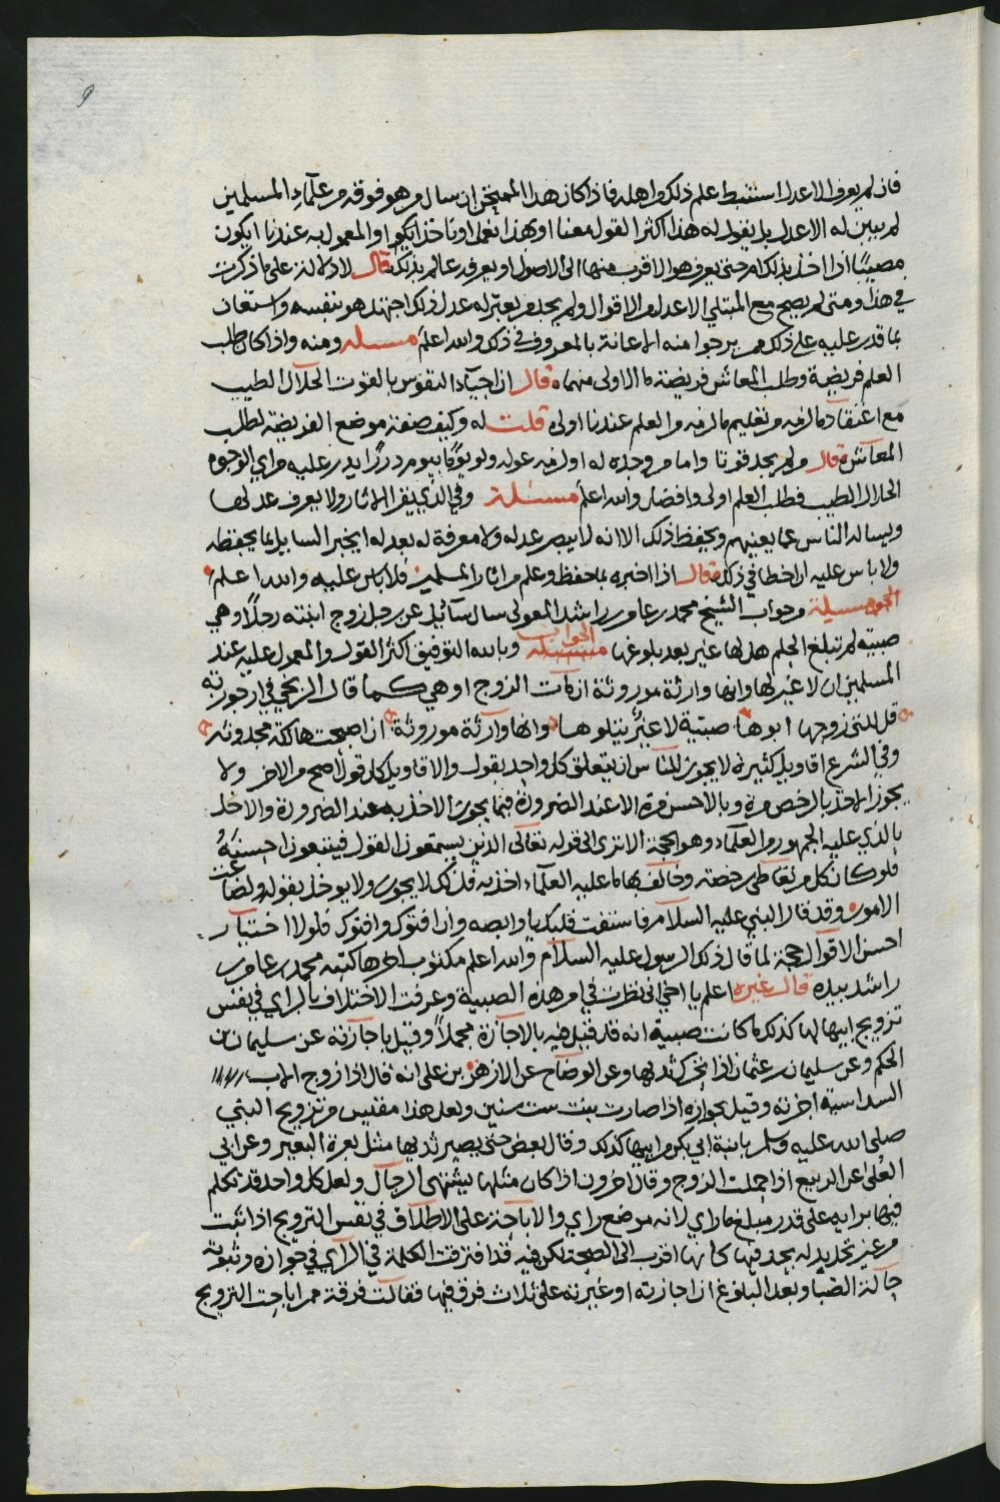 9
فان لم يعرف الاعدل استنبط علم ذلك من اهله فاذا كان هذا الممتحن ان سال من هو فوقه من علمآء المسلمين
لم يبين له الاعدل بل يقول له هذا اكثر القول معنا او بهذا نعمل او ناخذ ايكون او المعمول به عندنا ايكون
مصيبًا اذا اخذ بذلك ام حتى يعرف هو الاقرب منها الى الاصول او يعرفه عالم بذلك قال لا دلالة على ما ذكرت
في هذا ومتى لم يصح مع المبتلي الاعدل من الاقوال ولم يجد من يعبر له عدل ذلك اجتهد هو بنفسه واستعان
بما قدر عليه على ذلك ممن يرجوا منه الاعانة بالمعروف في ذلك والله اعلم مسئلة ومنه واذا كان طلب
العلم فريضة وطلب المعاش فريضة ما الاولى منهما قال ان احيآء النفوس بالقوت الحلال الطيب
مع اعتقاد ما لزمه وتعليم ما لزمه من العلم عندنا اولى قلت له وكيف صفة موضع الفريضة لطلب
المعاش قال من لم يجد قوتا واما من وجده له او لمن لزمه عوله ولو يومًا بيوم درًّا يدر عليه من اي الوجوه
الحلال الطيب فطلب العلم اولى وافضل والله اعلم مسئلة وفي الذي يقرا الاثار ولا يعرف عدلها
ويساله الناس عما يعنيهم ويحفظ ذلك الا انه لا يبصر عدله ولا معرفة له بعدله ايخبر السايل بما يحفظه
ولا باس عليه ان اخطا في ذلك قال اذا اخبره بما حفظ وعلم من اثار المسلمين فلا باس عليه والله اعلم
مسئلة ومن جواب الشيخ محمد بن عامر بن راشد المعولي سال سآئل عن رجل زوج ابنته رجلًا وهي
صبية لم تبلغ الحلم هل لها غير بعد بلوغها الجواب وبالله التوفيق اكثر القول والمعمول عليه عند
المسلمين ان لا غير لها وانها وارثة موروثة ان مات الزوج او هي كما قال الزنجي في ارجوزته
قل للتي زوجها ابوها صبية لا غير يتلوها وانها وارثة موروثة ان اصبحت هالكة مجدوثة
وفي الشرع اقاويل كثيرة لا يجوز للناس ان يتعلق كل واحد بقول والاقاويل كل قول اصح من الاخر ولا
يجوز الاخذ بالرخص مرة وبالاحسن مرة الا عند الضرورة فيما يجوز الاخذ به عند الضرورة والاخذ
بالذي عليه الجمهور من العلمآء وهو الحجة الا ترى الى قوله تعالى الذين يستمعون القول فيتبعون احسنهُ
فلو كان كل من تعاطى رخصة وخالف بها ما عليه العلمآء اخذ به فذلك لا يجوز ولا يوخذ بقوله ولضاعت
الامور وقد قال النبي عليه السلام فاستفت قلبك يا وابصه وان افتوك وافتوك فلولا اختيار
احسن الاقوال حجة لما قال ذلك الرسول عليه السلام والله اعلم مكتوب اخرها كتبه محمد بن عامر بن
راشد بيده قال غيره اعلم يا اخي اني نظرت في امر هذه الصبية وعرفت الاختلاف بالراي في نفس
تزويج ابيها لها كذلك ما كانت صبية انه قد قيل فيه بالاجازة مجملًا وقيل باجازته عن سليمان بن
الحكم وعن سليمان بن عثمان اذا تحرك ثديها وعن الوضاح عن الازهر بن علي انه قال اذا زوج الاب
السداسية اجزته وقيل بجوازه اذا صارت بنت ست سنين ولعل هذا مقتبس من تزويج النبي
صلى الله عليه وسلم بابنة ابي بكر من ابيها كذلك وقال بعض حتى يصير ثديها مثل بعرة البعير وعن ابي
العلى عن الربيع اذا حملت الزوج وقال اخرون اذا كان مثلها يشتهي الرجال ولعل كل واحد قد تكلم
فيها برايه على قدر مبلغ ما راي لانه موضع راي والاباحة على الاطلاق في نفس التزويج اذا ثبت
من غير تحديد له بحد فيها كانها اقرب الى الصحة لكن فيه قد افترقت الكلمة في الراي في جوازه وثبوته
حالة الصبا وبعد البلوغ ان اجازته او غيرته على ثلاث فرق فيها فقالت فرقة ممن اباحت التزويج